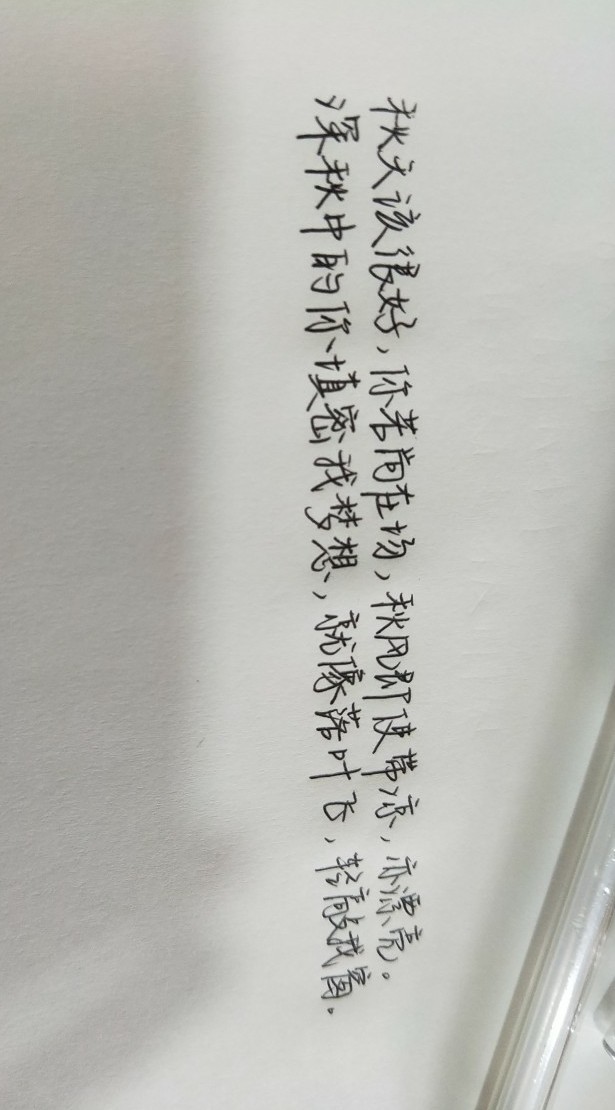 秋天该很好，你若尚在场，秋风即使带凉，亦漂亮。
深秋中的你填密我梦想，就像落叶飞，轻敲我窗。